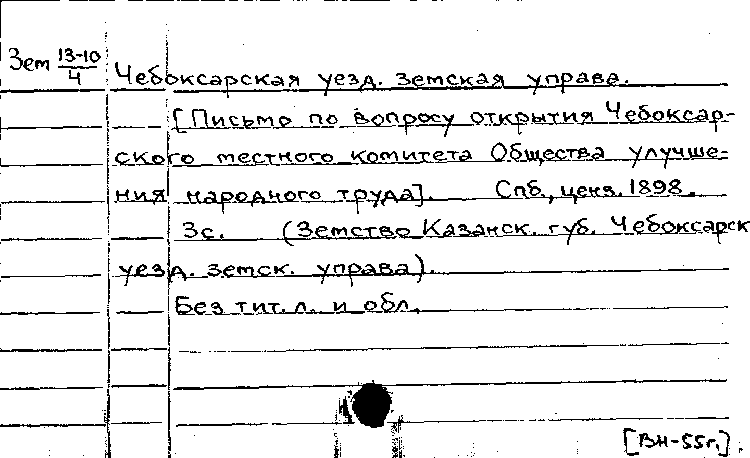 Зем 13-10/4 Чебоксарская уезд. земская управа.
[Письмо по вопросу открытия Чебоксар-
ского местного комитета Общества улучше-
ния народного труда]. Спб., ценз. 1898.
3с. (Земство Казанск. губ. Чебоксарск
уезд. земск. управа).
Без тит. л. и обл.
[ВН-55г.].